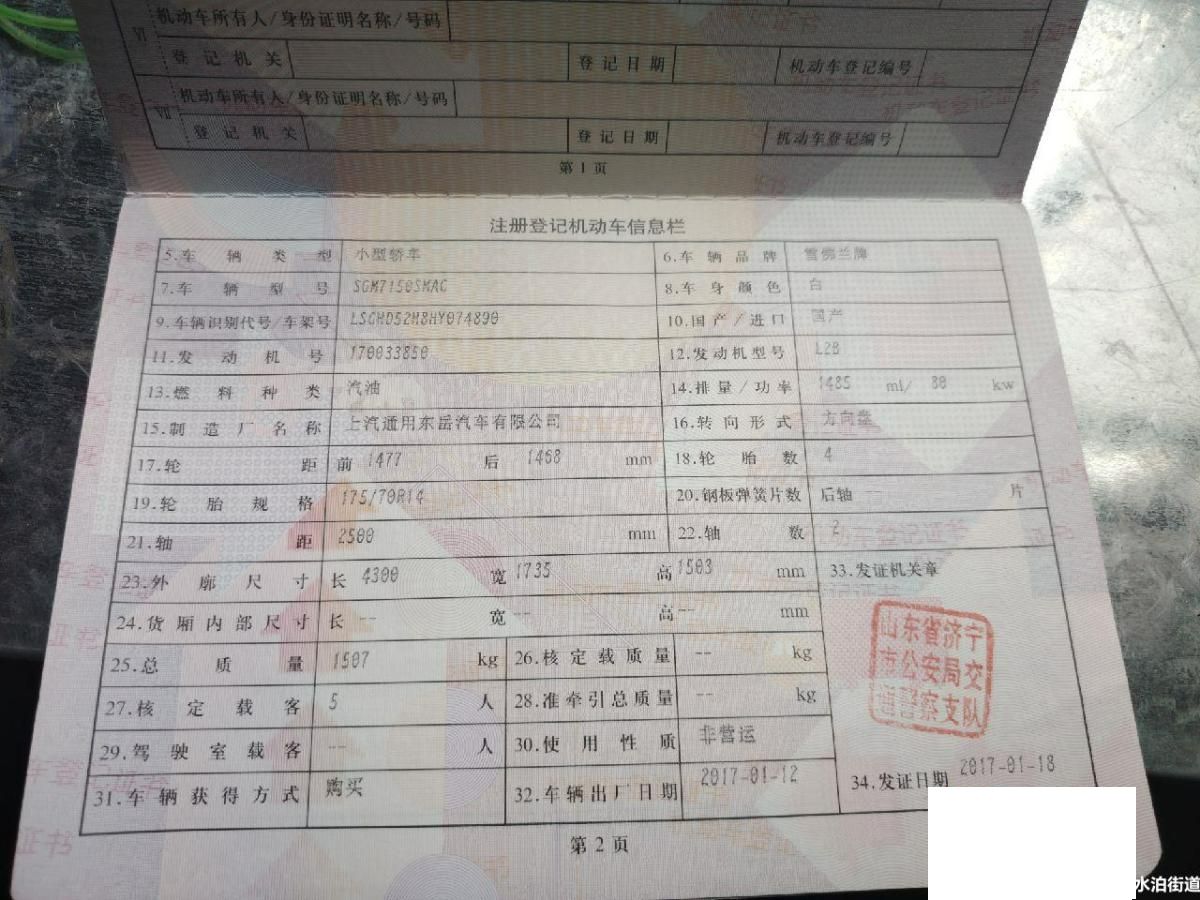 VI 机动车所有人/身份证明名称/号码
登记机关 登记日期 机动车登记编号
VII 机动车所有人/身份证明名称/号码
登记机关 登记日期 机动车登记编号
第1页
注册登记机动车信息栏
5.车辆类型 小型轿车 6.车辆品牌 雪佛兰牌
7.车辆型号 SGM7150SMAC 8.车身颜色 白
9.车辆识别代号/车架号 LSGHD52H8HY074890 10.国产/进口 国产
11.发动机号 170033850 12.发动机型号 L2B
13.燃料种类 汽油 14.排量/功率 1485 ml/ 80 kw
15.制造厂名称 上汽通用东岳汽车有限公司 16.转向形式 方向盘
17.轮距 前 1477 后 1468 mm 18.轮胎数 4
19.轮胎规格 175/70R14 20.钢板弹簧片数 后轴 -- 片
21.轴距 2500 mm 22.轴数 2
23.外廓尺寸 长 4300 宽 1735 高 1503 mm 33.发证机关章
24.货厢内部尺寸 长 -- 宽 -- 高 -- mm
山东省济宁
市公安局交
通警察支队
25.总质量 1507 kg 26.核定载质量 -- kg
27.核定载客 5 人 28.准牵引总质量 -- kg
29.驾驶室载客 -- 人 30.使用性质 非营运
31.车辆获得方式 购买 32.车辆出厂日期 2017-01-12 34.发证日期 2017-01-18
第2页
水泊街道